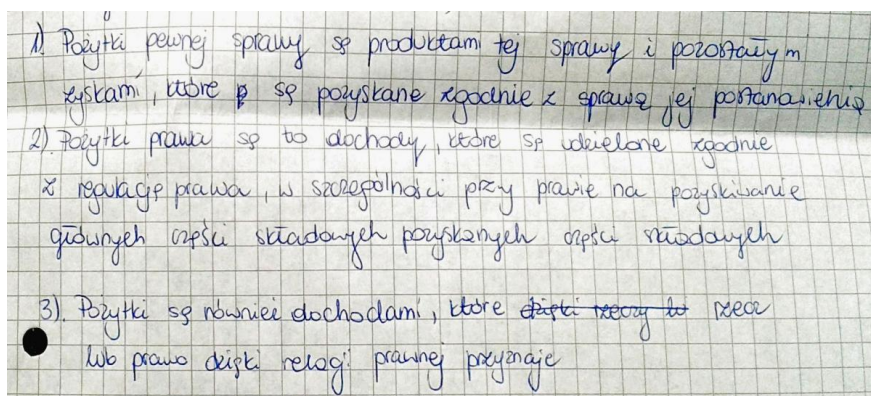 1) Pożytki pewnej sprawy są produktami tej sprawy i pozostałym
zyskami, które są pozyskane zgodnie z sprawą jej postanawienia
2) Pożytki prawa są to dochody, które są udzielone zgodnie
z regulacją prawa, w szczególności przy prawie na pozyskiwanie
głównych części składowych pozyskanych części składowych
3). Pożytki są również dochodami, które dzięki rzeczy lub rzecz
lub prawo dzięki relacji prawnej przyznaje